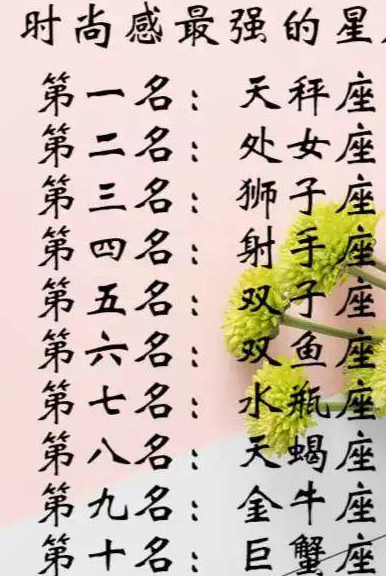 时尚感最强的星座
第一名：天秤座
第二名：处女座
第三名：狮子座
第四名：射手座
第五名：双子座
第六名：双鱼座
第七名：水瓶座
第八名：天蝎座
第九名：金牛座
第十名：巨蟹座